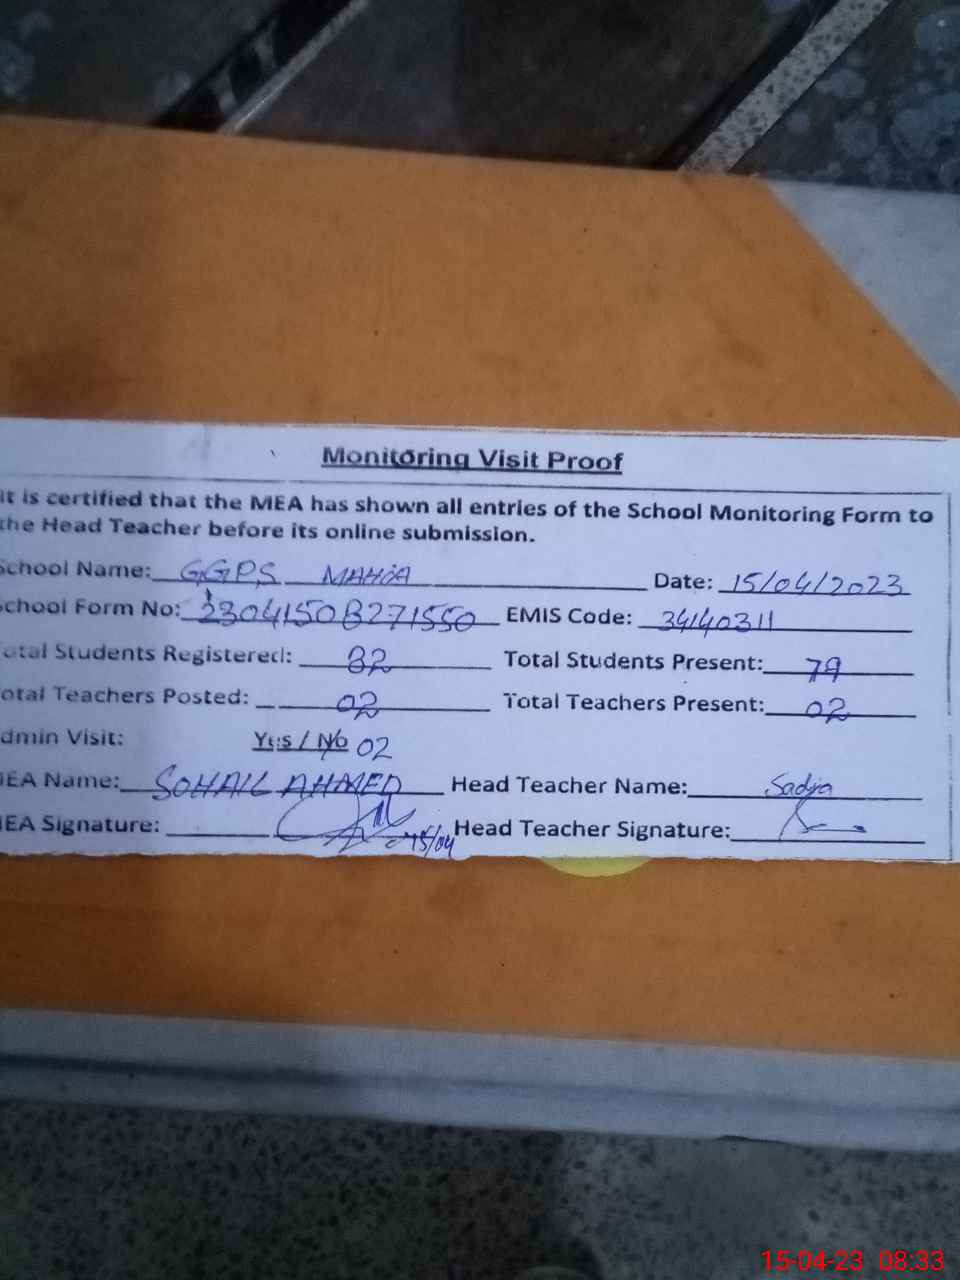 Monitoring Visit Proof
It is certified that the MEA has shown all entries of the School Monitoring Form to
the Head Teacher before its online submission.
School Name: GGPS MAHOA Date: 15/04/2023
School Form No: 23041508271550 EMIS Code: 34140311
otal Students Registered: 82 Total Students Present: 79
otal Teachers Posted: 02 Total Teachers Present: 02
dmin Visit: Yes / No 02
MEA Name: SOHAIL AHMED Head Teacher Name: Sadja
MEA Signature: 15/04 Head Teacher Signature:
15-04-23 08:33